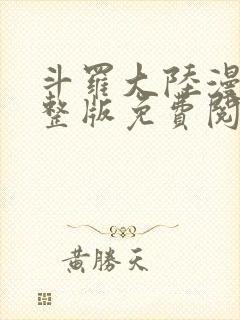 斗羅大陸漫
整版免費閱
黃勝天